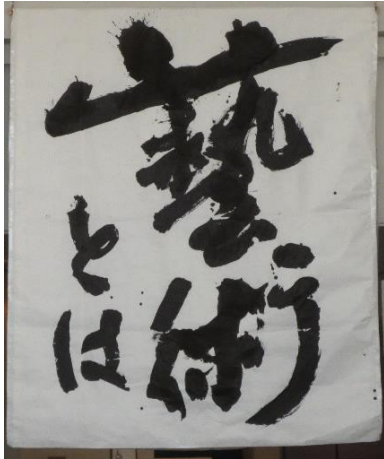 藝術
とは